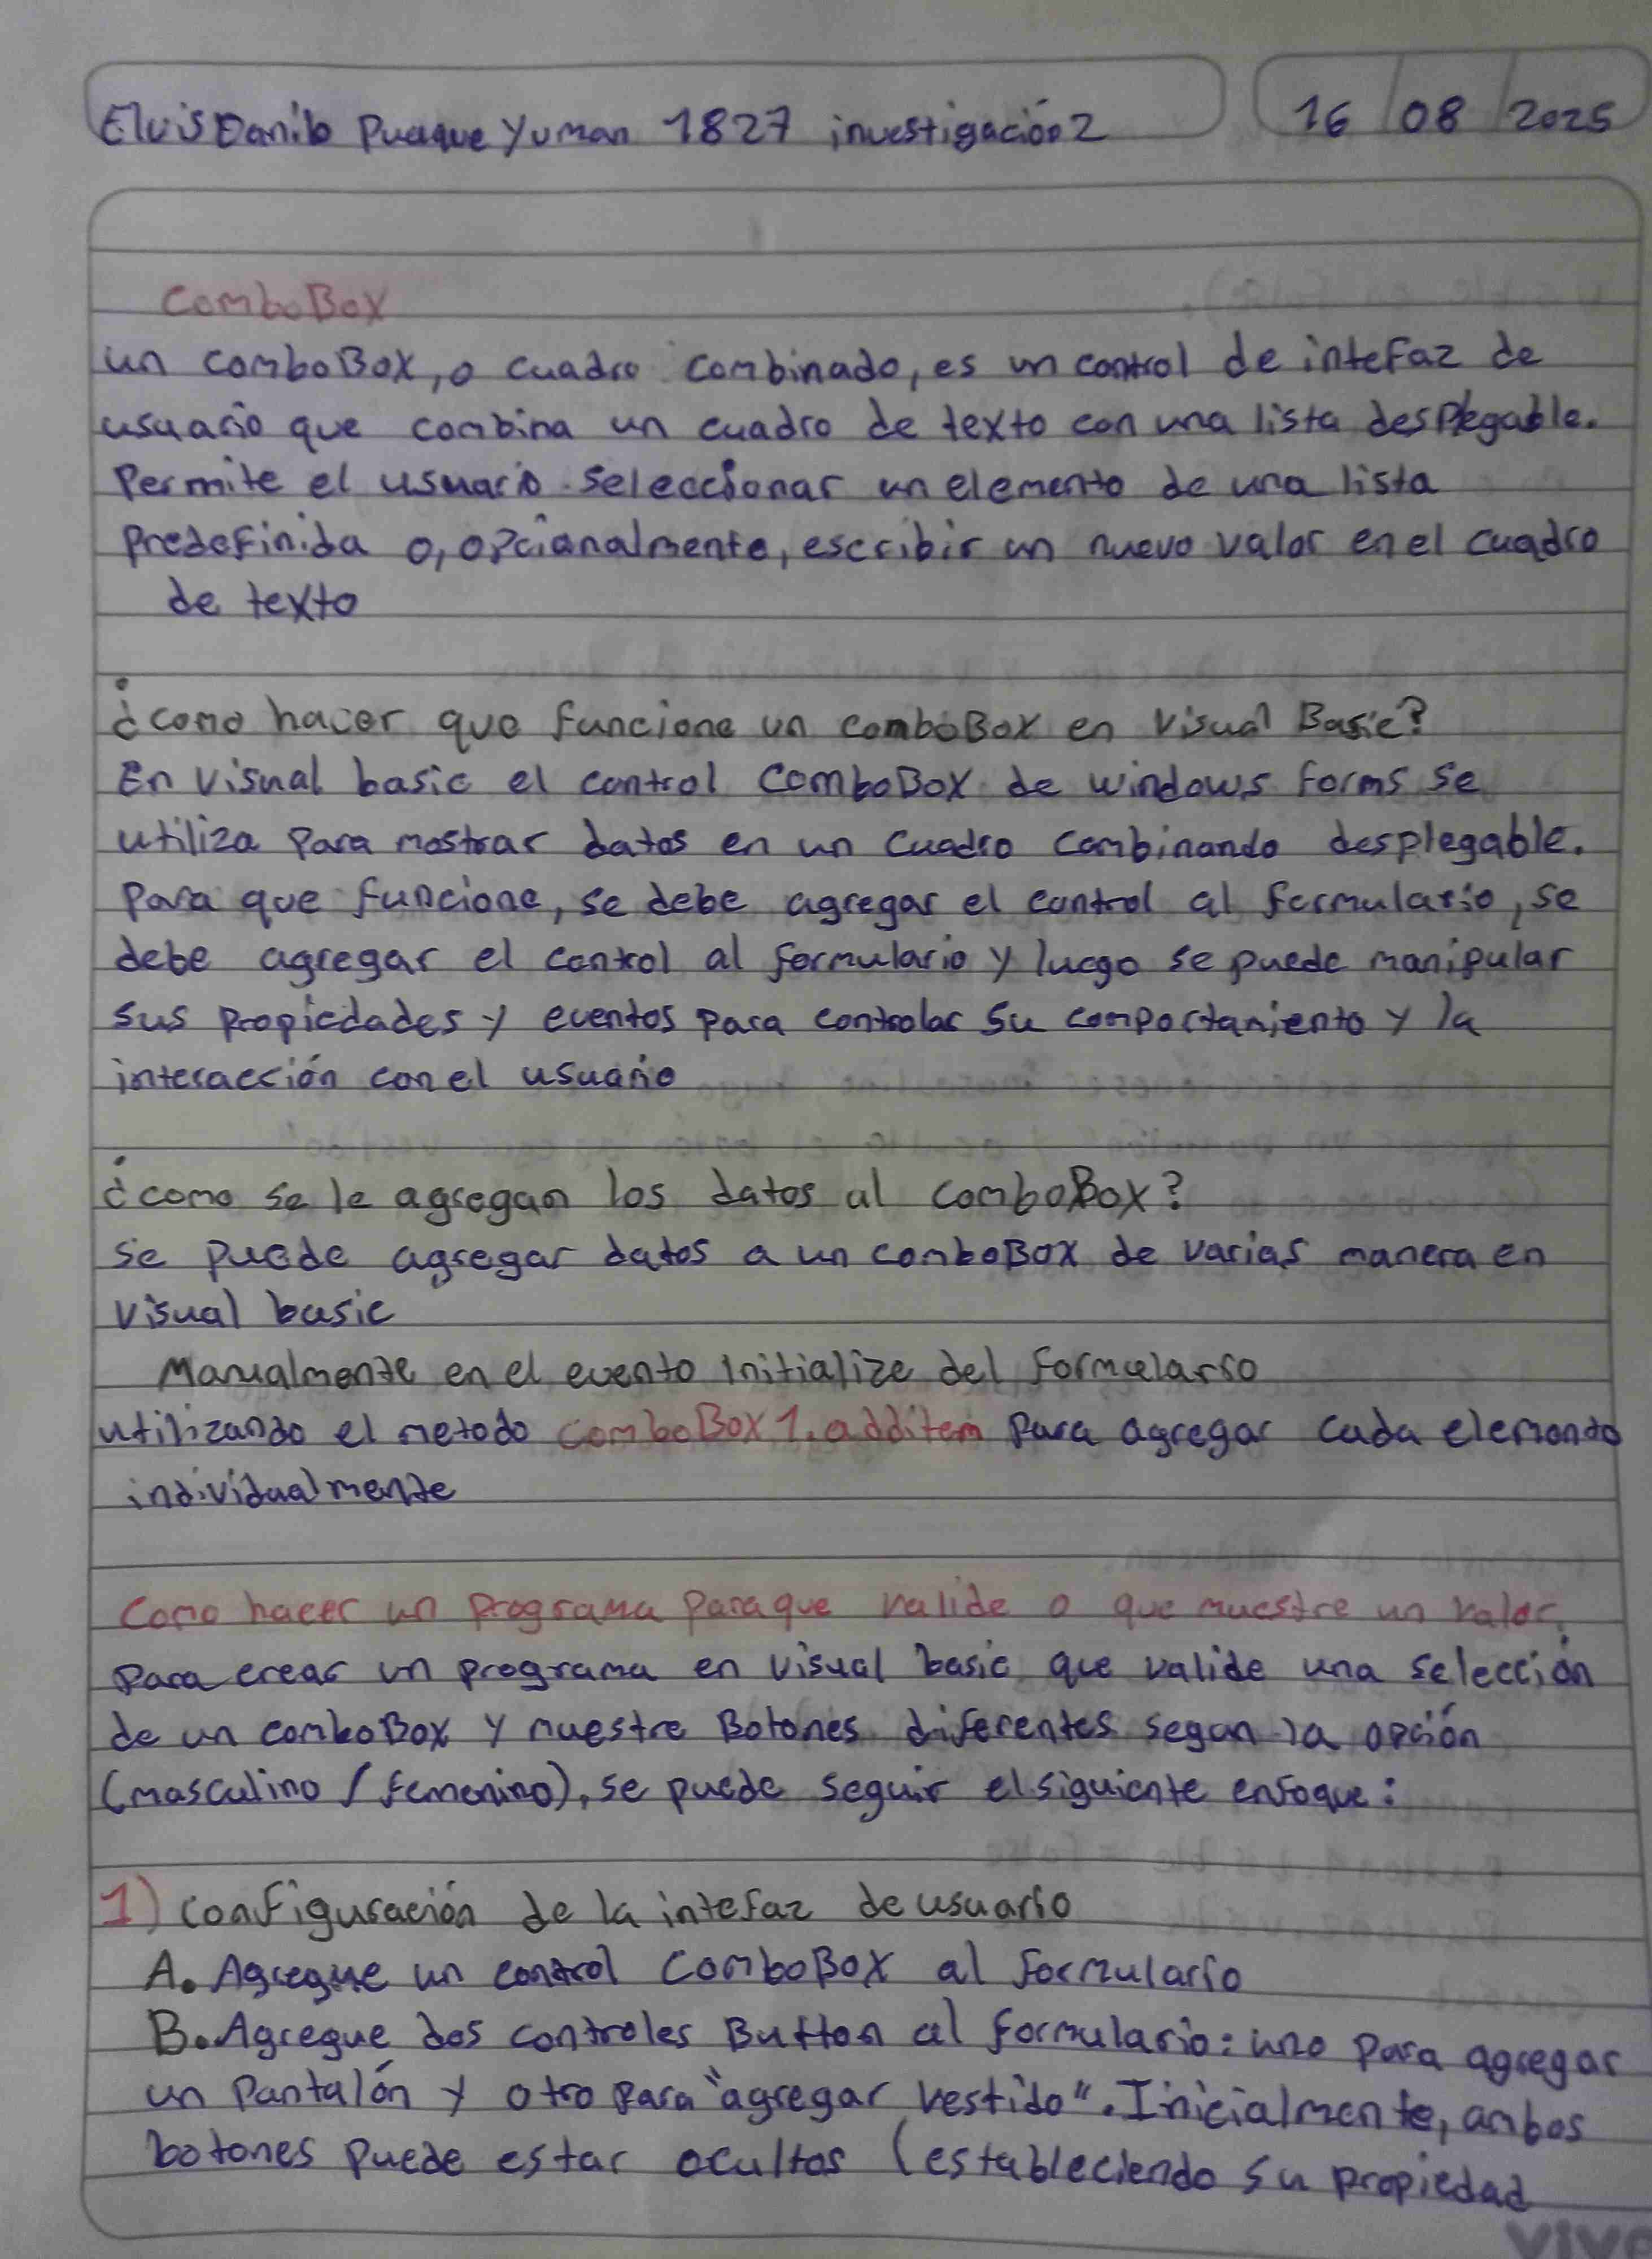 Elvis Danilo Puaque Yuman 1827 investigación 2
16 / 08 / 2025
ComboBox
un comboBox, o cuadro combinado, es un control de intefaz de
usuario que combina un cuadro de texto con una lista desplegable.
Permite el usuario seleccionar un elemento de una lista
Predefinida o, opcianalmente, escribir un nuevo valor en el cuadro
de texto
¿como hacer que funcione un comboBox en Visual Basic?
En Visual basic el control ComboBox de windows forms se
utiliza para mostrar datos en un cuadro combinando desplegable.
Para que funcione, se debe agregar el control al formulario, se
debe agregar el control al formulario y luego se puede manipular
sus propiedades y eventos para controlar su comportamiento y la
interacción con el usuario
¿como se le agregan los datos al comboBox?
se puede agregar datos a un comboBox de varias manera en
visual basic
Manualmente en el evento Initialize del formulario
utilizando el metodo comboBox1.additem para agregar cada elemento
individualmente
Como hacer un programa para que valide o que muestre un valor.
para crear un programa en visual basic que valide una selección
de un comboBox y muestre Botones diferentes segun la opción
(masculino / femenino), se puede seguir el siguiente enfoque:
1) configuración de la intefaz de usuario
A. Agregue un control comboBox al formulario
B. Agregue dos controles Button al formulario: uno para agregar
un Pantalón y otro para "agregar vestido". Inicialmente, ambos
botones puede estar ocultos (estableciendo su propiedad